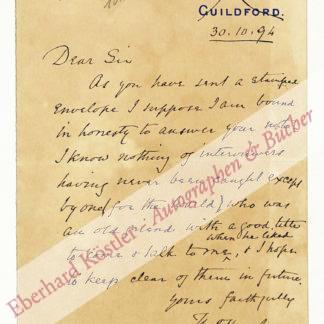 GUILDFORD.
30.10.94
Dear Sir
As you have sent a stamped
envelope I suppose I am bound
in honesty to answer your note
I know nothing of interviewers
having never been caught except
by one (for the World) who was
an old friend with a good title
when he liked
to come & talk to me, & I hope
to keep clear of them in future.
Yours faithfully
Eberhard Köstler · Autographen & Bücher